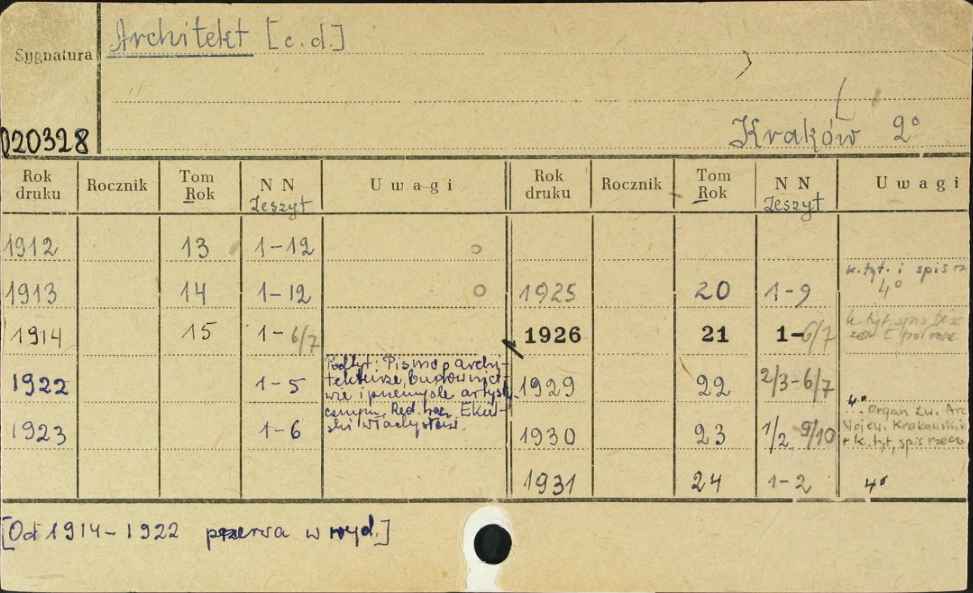 Architekt [c.d.]
Sygnatura
020328
Kraków 2°
Rok druku Rocznik Tom Rok N N Zeszyt Uwagi
1912 13 1-12
1913 14 1-12
1914 15 1-6/7
1922 1-5 Podtyt: Pismo p archi-
tekturze, budownict-
wie i przemyśle artys-
cznym. Red. nacz Ekiel-
ski Władysław.
1923 1-6
Rok druku Rocznik Tom Rok N N Zeszyt Uwagi
1925 20 1-9 k. tyt. i spis rz
4°
1926 21 1-6/7 k. tyt. spis
1929 22 2/3-6/7
4°
1930 23 1/2 9/10 Organ Zw. Arc
Wojew. Krakowski
k. tyt, spis rzecz
1931 24 1-2 4°
[Od 1914-1922 przerwa w wyd.]